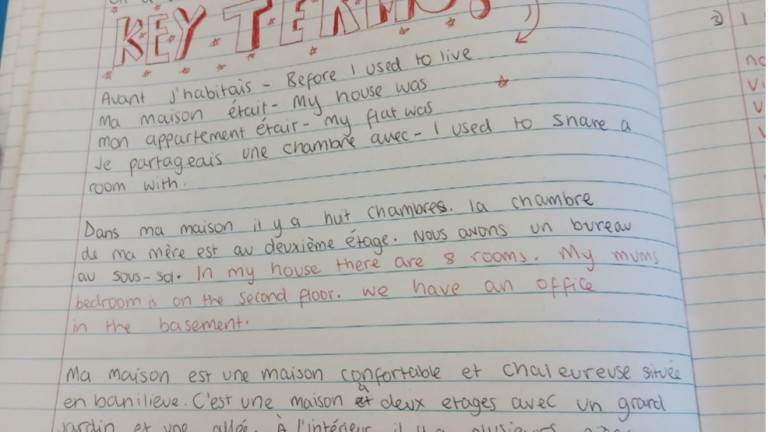 KEY TERMS!
Avant j'habitais - Before I used to live
Ma maison était - My house was
mon appartement était - my flat was
Je partageais une chambre avec - I used to share a
room with.
Dans ma maison il y a huit chambres. la chambre
de ma mère est au deuxième étage. Nous avons un bureau
au sous-sol. In my house there are 8 rooms. My mums
bedroom is on the second floor. we have an office
in the basement.
Ma maison est une maison confortable et chaleureuse située
en banilieve. C'est une maison à deux etages avec un grand
jardin et une allée. À l'intérieur il y a plusieurs
2) 1